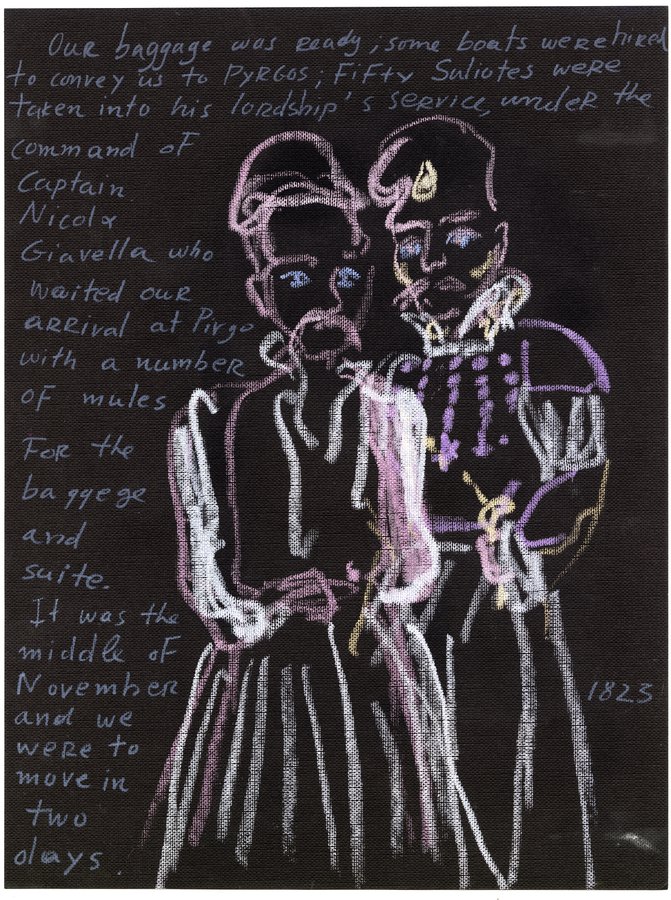 Our baggage was ready; some boats were hired
to convey us to Pyrgos; Fifty Suliotes were
taken into his lordship's service, under the
command of
Captain
Nicola
Giavella who
waited our
arrival at Pirgo
with a number
of mules
For the
baggege
and
suite.
It was the
middle of
November
and we
were to
move in
two
days.
1823